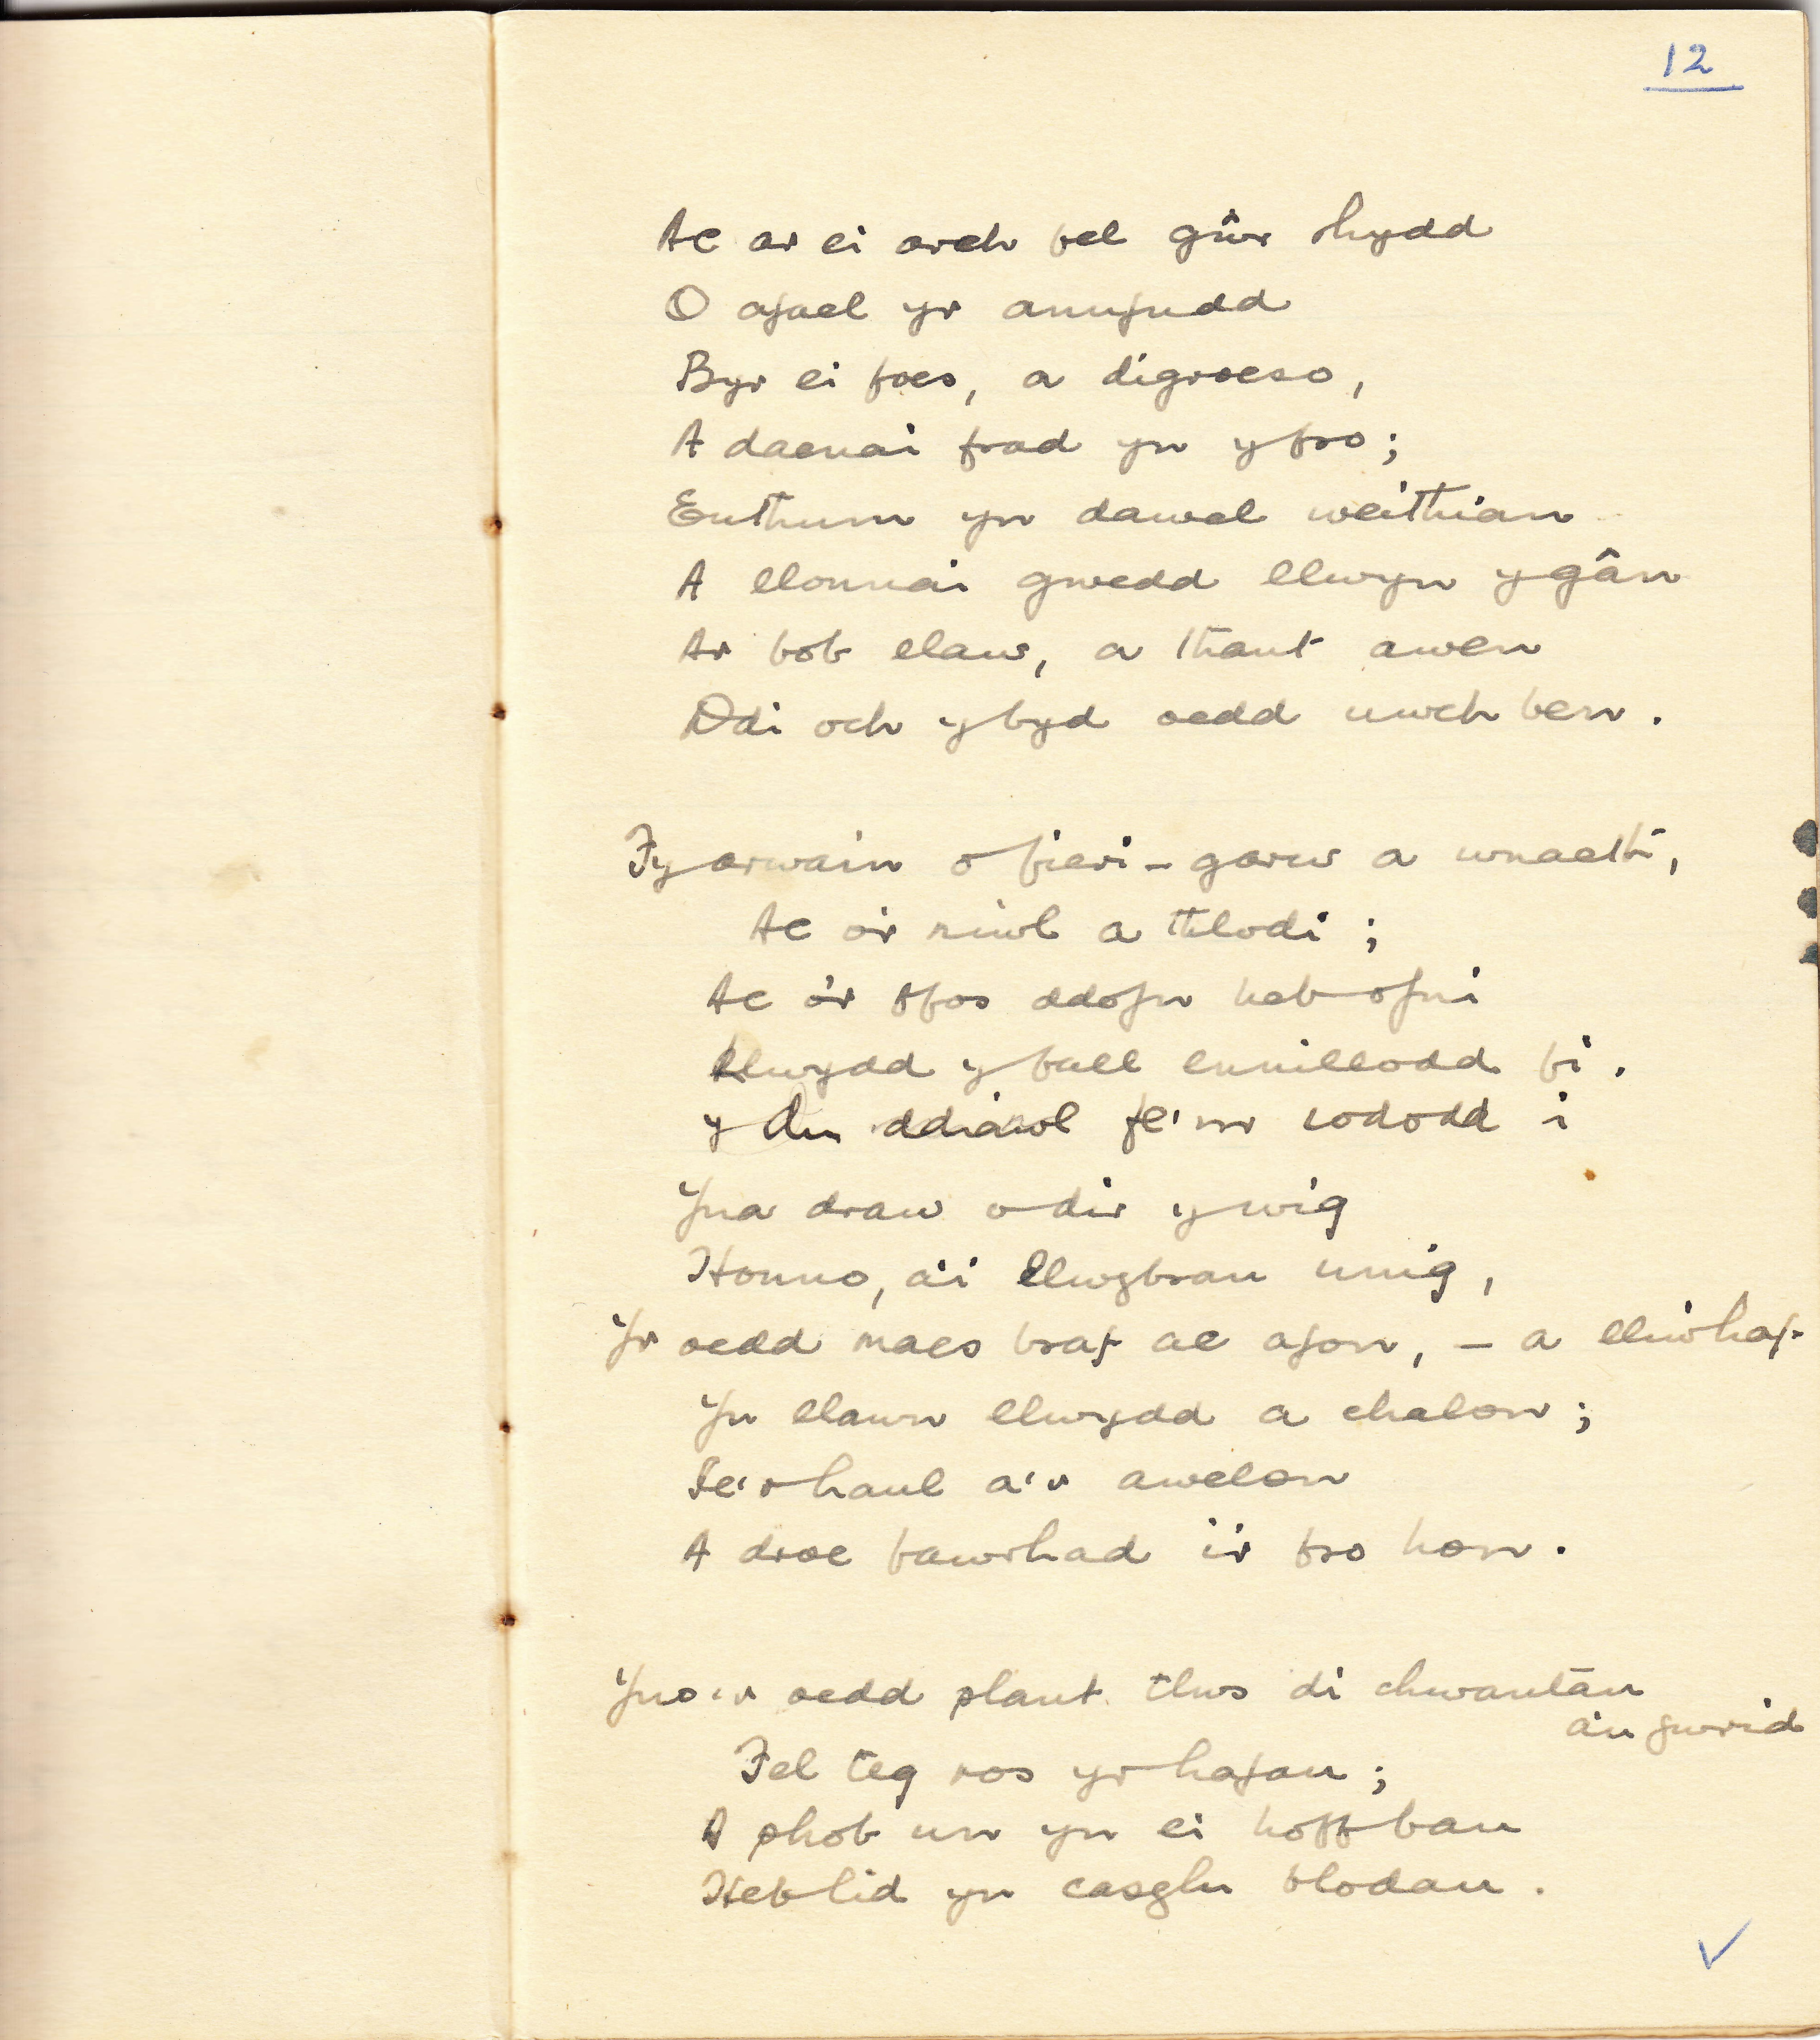 12
Ac ar ei arch fel gŵr rhydd
O afael yr anufudd
Byr ei foes, a digroeso,
A daenai frad yn y fro;
Euthum yn dawel weithian
A llonnai gwedd llwyn y gân
Ar bob llaw, a thant awen
Ddi och y byd oedd uwch ben.
Fy arwain o fieri-garw a wnaethi,
Ac o'r niwl a thlodi;
Ac o'r ffos ddofn heb ofni
Llwydd y fall ennillodd fi.
y du ddiawl fe'm cododd i
Yna draw o dir y wig
Honno, a'i llwybrau unig,
Yr oedd maes braf ac afon, – a lliw haf
Yn llawn llwydd a chalon;
Fe'r haul a'r awelon
A droe fawrhad i'r fro hon.
Yno'r oedd plant tlws di chwantau
a'u gwrid
Fel teg ros yr hafau;
A phob un yn ei hoff bau
Heb lid yn casglu blodau.